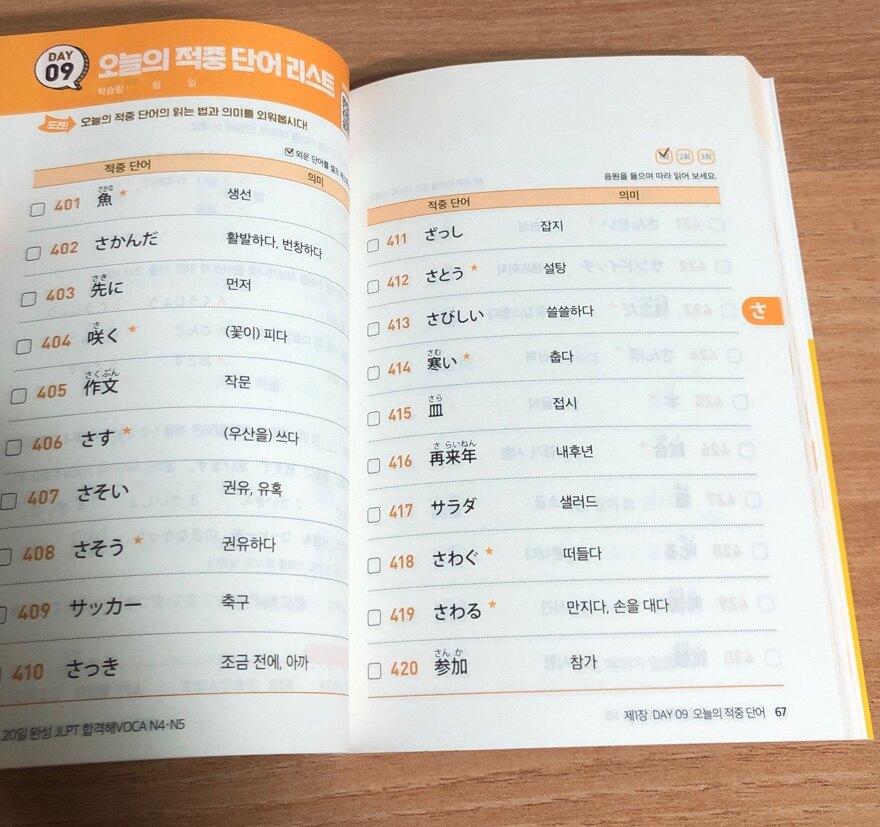 DAY
09
오늘의 적중 단어 리스트
학습일 월 일
도전! 오늘의 적중 단어의 읽는 법과 의미를 외워봅시다!
외운 단어를 셀프
적중 단어 의미
さかな
401 魚 ★ 생선
402 さかんだ 활발하다, 번창하다
さき
403 先に 먼저
さ
404 咲く ★ (꽃이) 피다
さくぶん
405 作文 작문
406 さす ★ (우산을) 쓰다
407 さそい 권유, 유혹
408 さそう ★ 권유하다
409 サッカー 축구
410 さっき 조금 전에, 아까
20일 완성 JLPT 합격해VOCA N4·N5
2회 3회
음원을 들으며 따라 읽어 보세요.
적중 단어 의미
411 ざっし 잡지
412 さとう ★ 설탕
413 さびしい 쓸쓸하다
さむ
414 寒い ★ 춥다
さら
415 皿 접시
さ らいねん
416 再来年 내후년
417 サラダ 샐러드
418 さわぐ ★ 떠들다
419 さわる ★ 만지다, 손을 대다
さん か
420 参加 참가
さ
제1장 DAY 09 오늘의 적중 단어 67